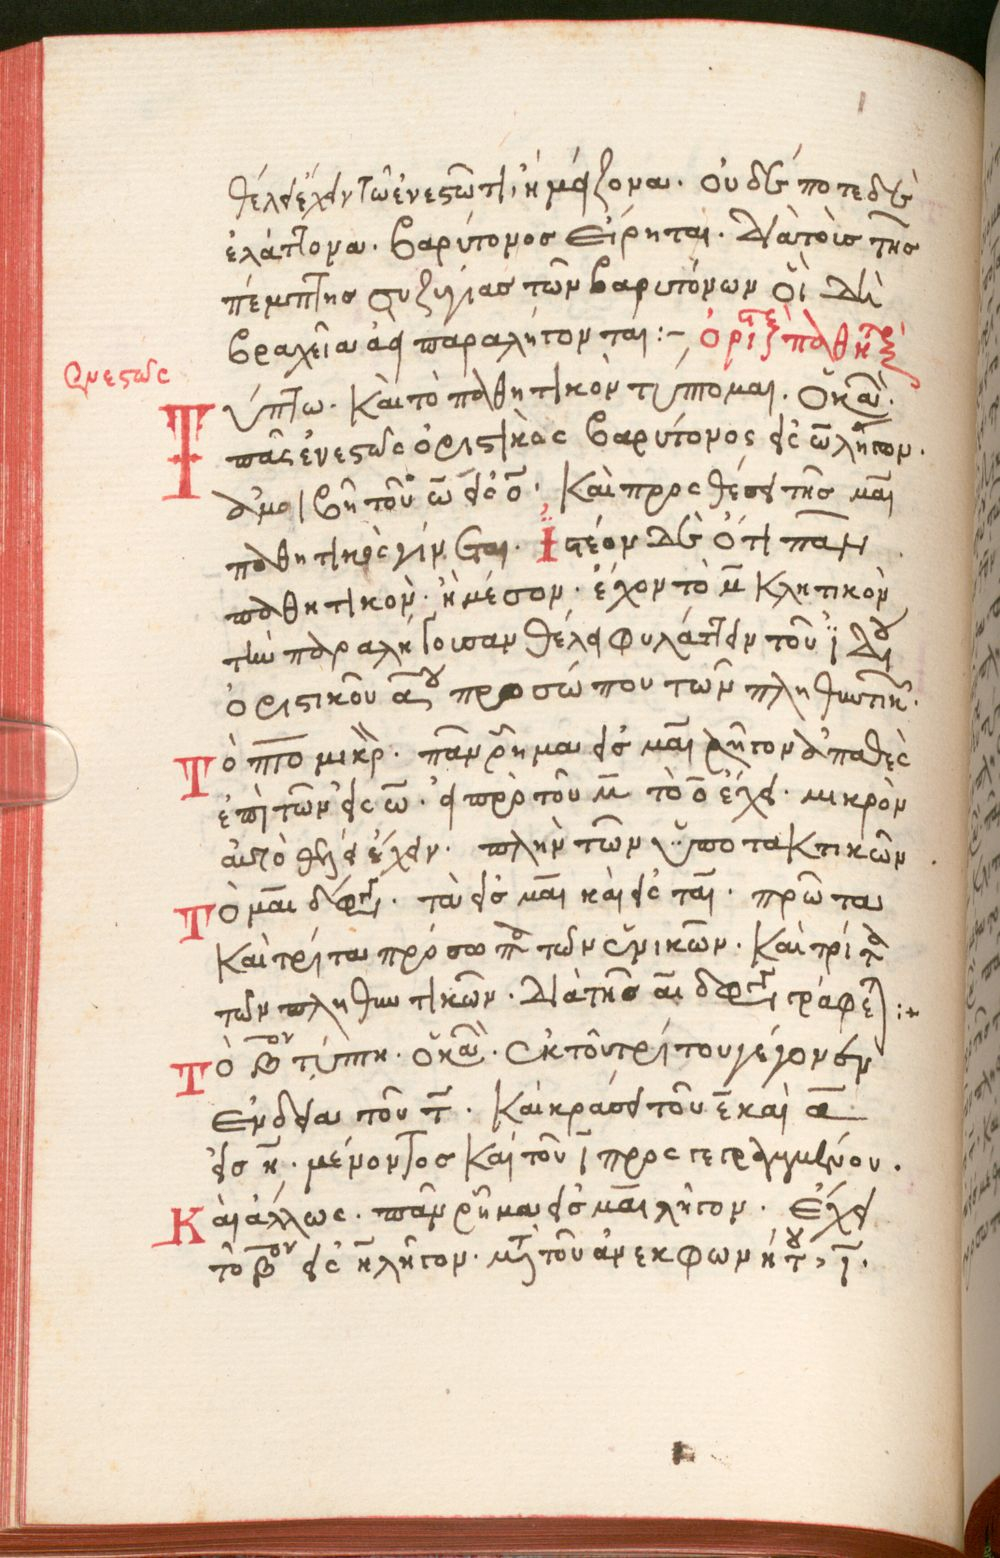 θέλει ἔχειν τῶ ἐνεστῶτι, ἢ μείζονα. οὐδέποτε δὲ
ἐλάττονα. βαρύτονος εἴρηται. διὰ τοῖς τῆς
πέμπτης συζυγίας τῶν βαρυτόνων οἳ διὰ
βραχεῖα ἀεὶ παραλήγονται :~
ἐνεστὼς
Τύπτω. καὶ τὸ παθητικὸν τύπτομαι. ὁ κανών.
πᾶς ἐνεστὼς ὁριστικὸς βαρύτονος εἰς ω λῆγον.
ἀμοιβῆ τοῦ ω εἰς ο. καὶ προσθέσει τῆς μαι
παθητικὸς γίνεται. Ἰστέον δὲ ὅτι πᾶν
παθητικὸν. ἢ μέσον. ἔχον τὸ μ κλητικὸν
τὴν παραλήγουσαν θέλει φυλάττειν τοῦ ἰδίου
ὁριστικοῦ α προσώπου τῶν πληθυντικῶν.
Τὸ πτο μικρὸν. πᾶν ῥῆμα εἰς μαι λῆγον ἀπαθὲς
ἐπὶ τῶν εἰς ω. εἰ πρὸ τοῦ μ τὸ ο ἔχει. μικρὸν
αὐτὸ θέλει ἔχειν. πλὴν τῶν ὑποτακτικῶν
Τὸ μαι δίφθογγον. τὰ εἰς μαι καὶ εἰς ται. πρῶτα
καὶ τρίτα πρόσωπα τῶν ἑνικῶν. καὶ τρίτα
τῶν πληθυντικῶν. διὰ τῆς αι διφθόγγου γράφεται :~
Τὸ βον τύπτη. ὁ κανών. ἐκ τοῦ τρίτου γέγονεν
ἐνδεία τοῦ τ. καὶ κράσει τοῦ ε καὶ α
εἰς η. μένοντος καὶ τοῦ ι προσγεγραμμένου.
Καὶ ἄλλως. πᾶν ῥῆμα εἰς μαι λῆγον. ἔχει
τὸ βον εἰς η λῆγον. μετὰ τοῦ ἀνεκφωνήτου ι.